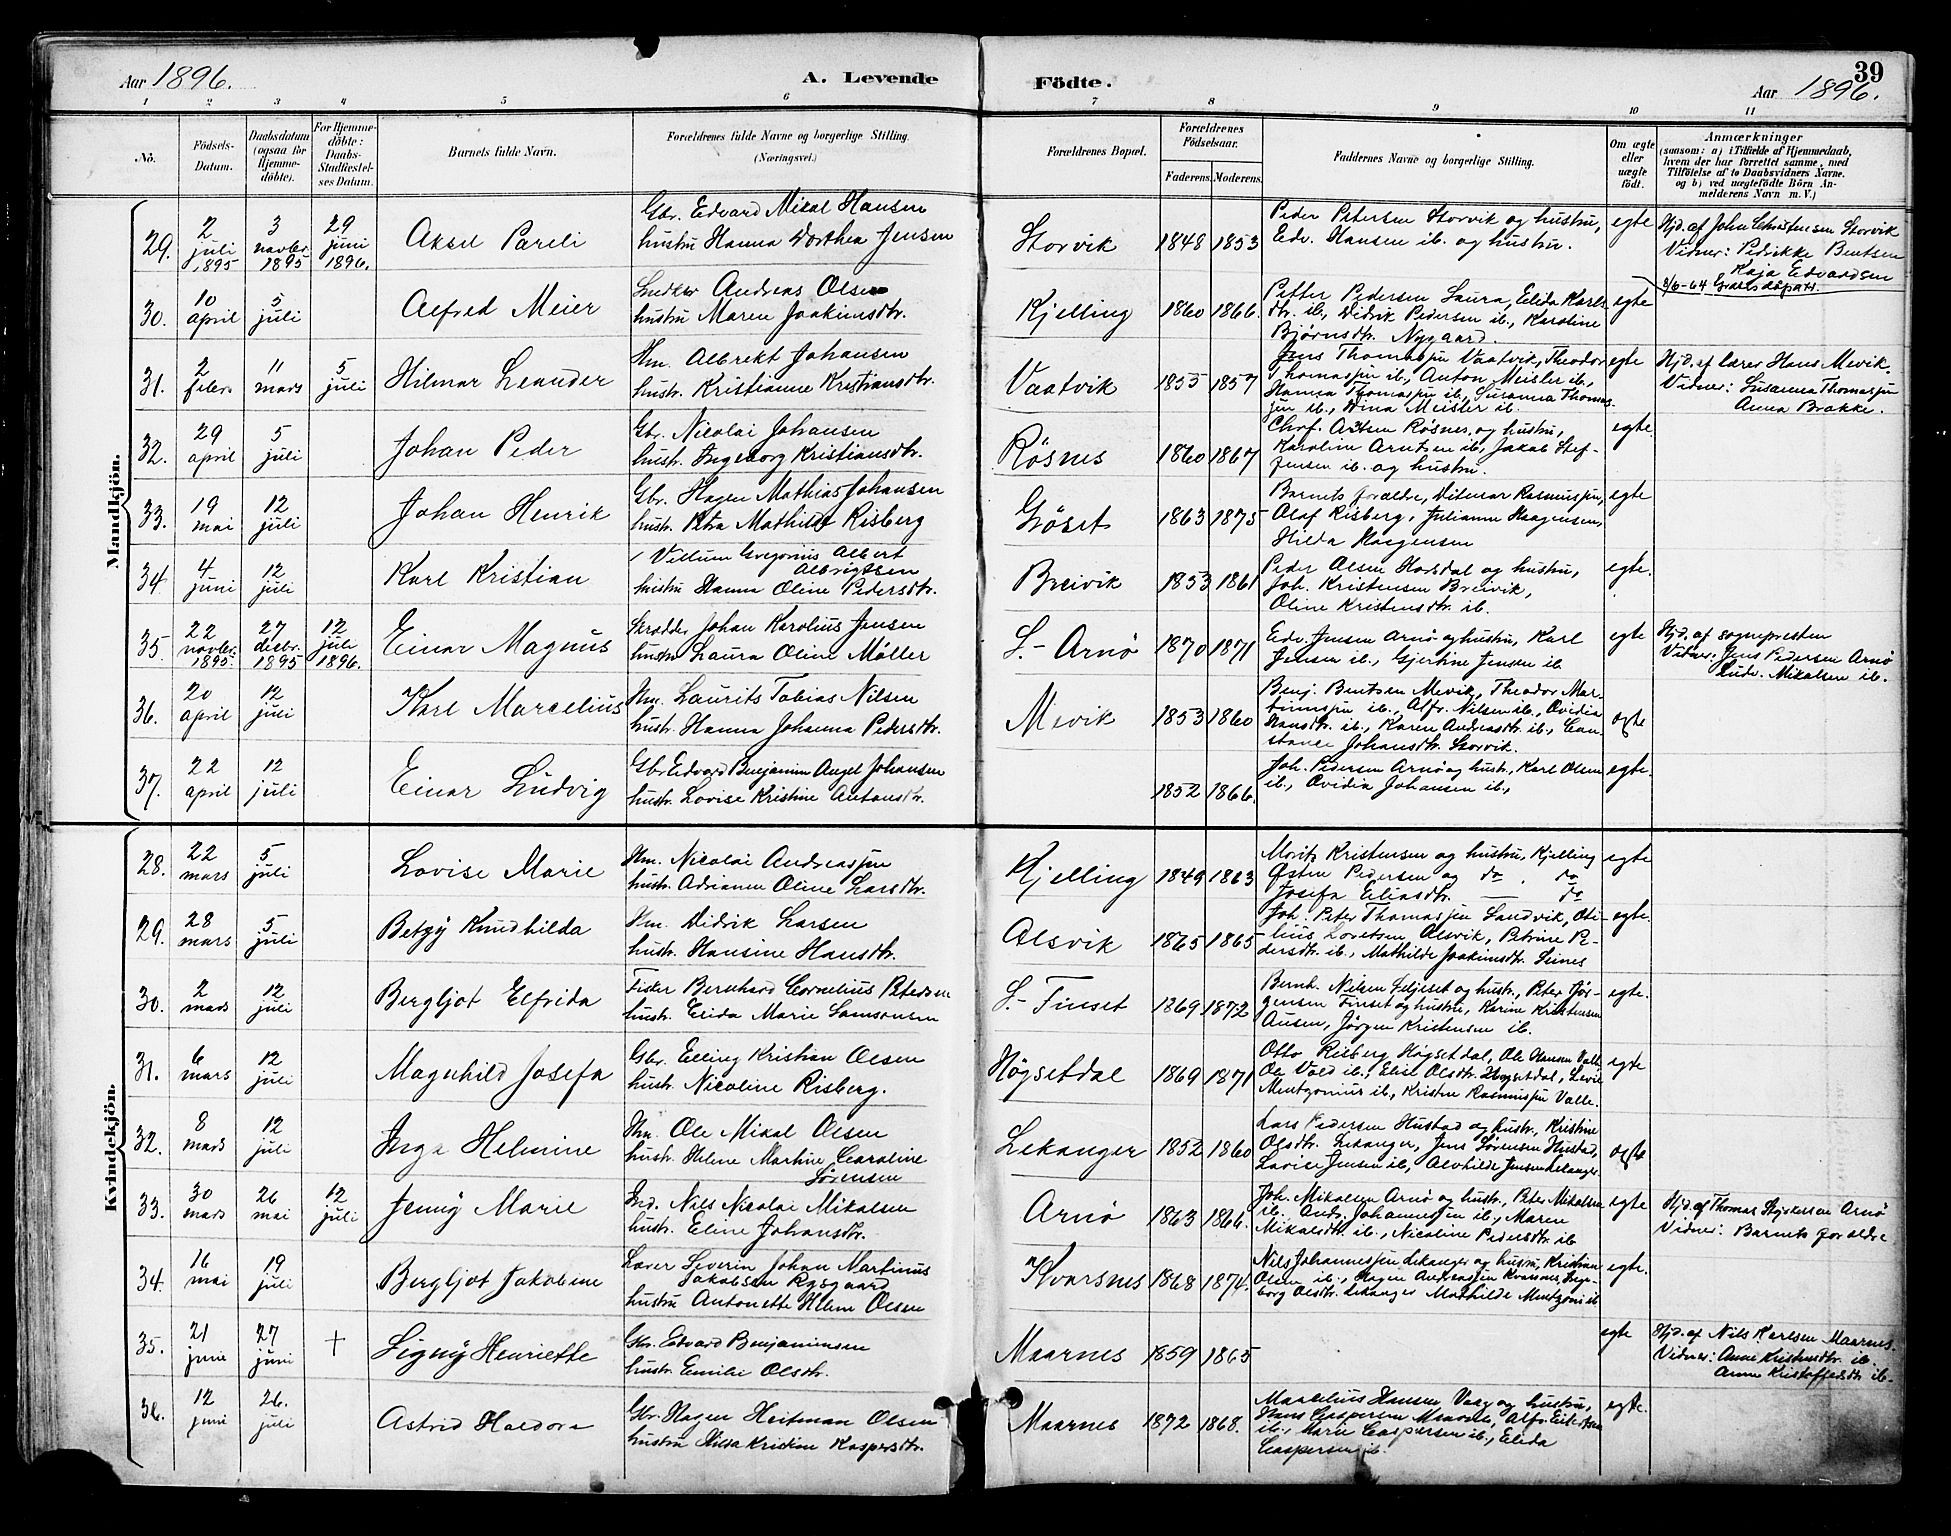 39
Aar 1896.
A. Levende
Födte.
Aar 1896.
1 2 3 4 5 6 7 8 9 10 11
No.
Födsels-Datum.
Daabsdatum (ogsaa for Hjemme-döbte).
For Hjemme-döbte: Daabs-Stadfæstel-ses Datum.
Barnets fulde Navn.
Forældrenes fulde Navne og borgerlige Stilling.
(Næringsvei.)
Forældrenes Bopæl.
Forældrenes Födselsaar.
Faderens. Moderens.
Faddernes Navne og borgerlige Stilling.
Om ægte eller uægte födt.
Anmærkninger
(saasom: a) i Tilfælde af Hjemmedaab,
hvem der har forrettet samme, med
Tilföielse af to Daabsvidners Navne.
og b) ved uægtefödte Börn An-
melderens Navn m. V.)
Mandkjön.
29. 2 juli 1895 3 novbr. 1895 29 juni 1896. Aksel Pareli
Gbr. Edvard Mikal Hansen
hustru Hanna Dorthea Jensen
Storvik 1848 1853
Peder Petersen Storvik og hustru,
Edv. Hansen ib. og hustru.
egte
Hjd. af John Christensen Storvik
Vidner: Pedrikke Bentsen
Kaja Edvardsen
30. 10 april 5 juli Alfred Meier
Andreas Olsen
hustru Maren Joakimsdtr.
Kjelling 1860 1866.
Petter Pedersen, Laura, Elida Karls-
dtr. ib., Didrik Pedersen ib., Karoline
Bjørnsdtr. Nygaard.
egte
31. 2 febr. 11 mars 5 juli Hilmar Leander
Hm. Albrekt Johansen
hustr. Kristianne Kristiansdtr.
Vaatvik 1855 1857
Jens Thomassen Vaatvik, Theodor
Thomassen ib., Anton Meisler ib.,
Hanna Thomassen ib., Susanna Thomas-
sen ib., Dina Meisler ib.
egte
Hjd. af lærer Hans Mevik.
Vidner: Susanna Thomassen
Anna Brakke.
32. 29 april 5 juli Johan Peder
Gbr. Nicolai Johansen
hustr. Ingeborg Kristiansdtr.
Røsnes 1860 1867
Chrf. Røsnes, og hustru,
Karoline Arntsen ib., Jakob Stef-
fensen ib. og hustru.
egte.
33. 19 mai 12 juli Johan Henrik
Gbr. Hagen Mathias Johansen
hustr. Petra Mathilde Risberg
Gøset 1863 1875
Barnets forældre, Ditmar Rasmussen,
Olaf Risberg, Julianne Haagensen,
Hilda Haagensen
egte
34. 4 juni 12 juli Karl Kristian
Villum Gregorius Albert
Albrigtsen
hustru Hanna Oline Pedersdtr.
Breivik 1853 1861
Peder Olsen Horsdal og hustru,
Joh. Kristensen Breivik,
Oline Kristensdtr. ib.
egte.
35. 22 novbr. 1895. 27 desbr. 1895 12 juli 1896. Einar Magnus
Skrædder Johan Karolius Jensen
hustru Laura Oline Møller
S.-Arnø 1870 1871
Edv. Jensen Arnø og hustru, Karl
Jensen ib., Gjertine Jensen ib
egte
Hjd. af sognepresten
Vidner: Jens Pedersen Arnø
Ludv. Mikalsen ib.
36. 20 april 12 juli Karl Marcelius
Hm. Laurits Tobias Nilsen
hustr. Hanna Johanna Pedersdtr.
Mevik 1853 1860
Benj. Bentsen Mevik, Theodor Mar-
tinussen ib., Alfr. Nilsen ib., Ovidia
Hansdtr. ib., Karen Andreasdtr. ib., Con-
stance Johansdtr. Storvik.
egte
37. 22 april 12 juli Einar Ludvig
Gbr. Edvard Benjamin Angel Johansen
hustr. Lovise Kristine Antonsdtr.
1852 1866.
Joh. Pedersen Arnø og hustr., Karl Olsen
ib., Ovidia Johansen ib.,
egte.
Kvindekjön.
28. 22 mars 5 juli Lovise Marie
Hm. Nicolai Andreassen
hustr. Adriane Oline Larsdtr.
Kjelling 1849 1863
Morits Kristensen og hustru, Kjelling
Østen Pedersen og do. do
Josefa Eliasdtr. — do
egte
29. 28 mars 5 juli Betzy Knudhilda
Hm. Didrik Larsen
hustr. Hansine Hansdtr.
Alsvik 1865 1865
Joh. Peter Thomassen Sandvik, Oti-
lius Lorntsen Alsvik, Petrine Pe-
dersdtr. ib., Mathilde Joakimsdtr. Seines
egte.
30. 2 mars 12 juli Bergljot Elfrida
Fisker Bernhard Cornelius Petersen
hustr. Elida Marie Samsonsen
S.-Finset 1869 1872
Bernh. Nilsen Seljeset og hustr., Peter Jør-
gensen Finset og hustru, Karine Kristensen
Ausen, Jørgen Kristensen ib.
egte.
31. 6 mars 12 juli Magnhild Josefa
Gbr. Elling Kristian Olsen
hustr. Nicoline Risberg.
Høgsetdal 1869 1871
Otto Risberg Høgsetdal, Ole Hansen Valle,
Ole Vold ib., Elise Olsdtr. Høgsetdal, Levie
Mentzonius ib., Kristine Rasmussen Valle.
egte
32. 8 mars 12 juli Inga Helmine
Hm. Ole Mikal Olsen
hustr. Helene Martine Caroline
Sörensen
Lekanger 1852 1860
Lars Pedersen Hustad og hustr., Kristine
Olsdtr. Lekanger, Jens Sørensen Hustad,
Lovise Jensen ib., Alvhilde Jensen Lekanger
egte
33. 30 mars 26 mai 12 juli Jenny Marie
Ind. Nils Nicolai Mikalsen
hustr. Eline Johansdtr.
Arnø 1863 1866.
Joh. Mikalsen Arnø og hustr., Peter Mikalsen
ib., Andr. Johannessen ib., Maren
Mikalsdtr. ib., Nicoline Pedersdtr. ib
egte
Hjd. af Thomas Arnø
Vidner: Barnets forældre
34. 16 mai 19 juli Bergljot Jakobine
Lærer Severin Johan Martinus
Jakobsen Rysgaard
hustru Antonette Helene Olsen
Kvarsnes 1868 1874.
Nils Johannessen Lekanger og hustru, Kristian
Olsen ib., Hagen Andreassen Kvarsnes, Inge-
borg Olsdtr. Lekanger Mathilde Mentzoni ib
egte.
35. 21 juni 27 juni + Signy Henriette
Gbr. Edvard Benjaminsen
hustru. Emilie Olsdtr.
Maarnes 1859 1865
egte
Hjd. af Nils Karlsen Maarnes.
Vidner: Anne Kristensdtr. ib.
Anne Kristoffersdtr ib.
36. 12 juni 26. juli Astrid Haldora
Gbr. Hagen Heitman Olsen
hustru Hilda Kristine Kaspersdtr.
Maarnes 1872 1868.
Marcelius Hansen Vaag og hustru,
Hans Caspersen Maarnes, Alfr. Eilertsen
ib., Marie Caspersen ib., Elida
Caspersen ib.
egte.